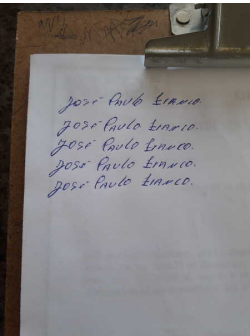 José Paulo Bianco.
José Paulo Bianco.
José Paulo Bianco.
José Paulo Bianco.
José Paulo Bianco.